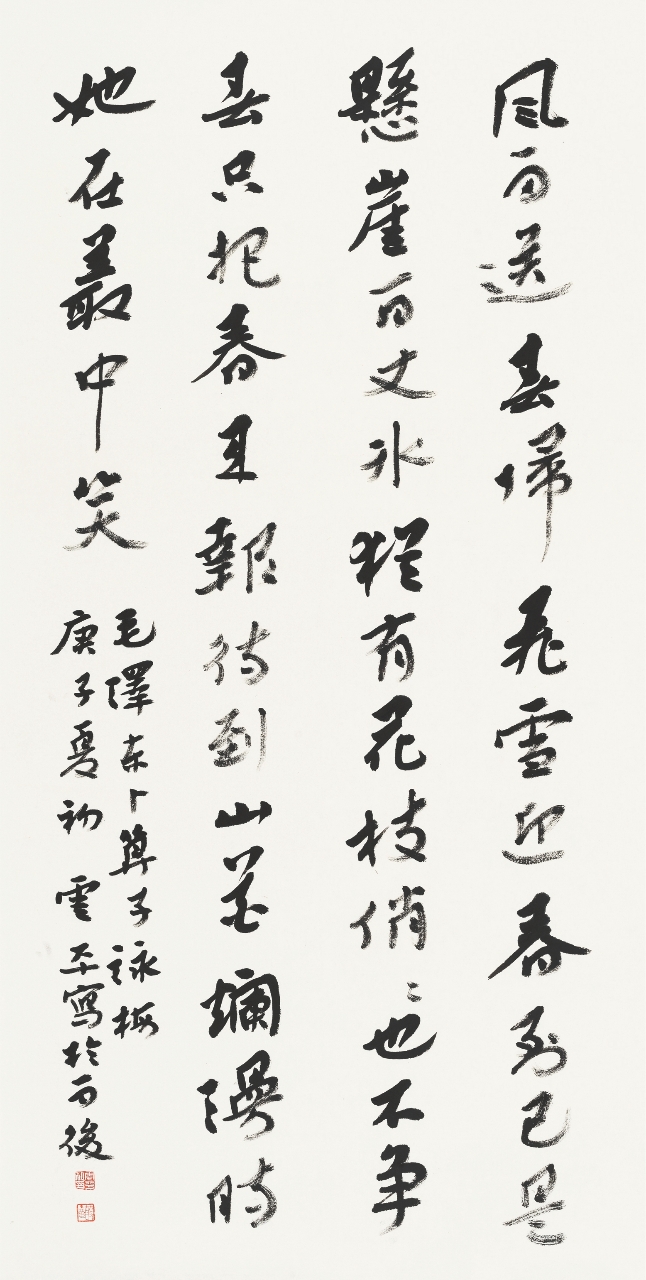 風雨送春歸飛雪迎春到已是
懸崖百丈冰猶有花枝俏俏也不争
春只把春來報待到山花爛漫時
她在叢中笑
毛澤东卜算子詠梅
庚子夏初雲平寫於雨後